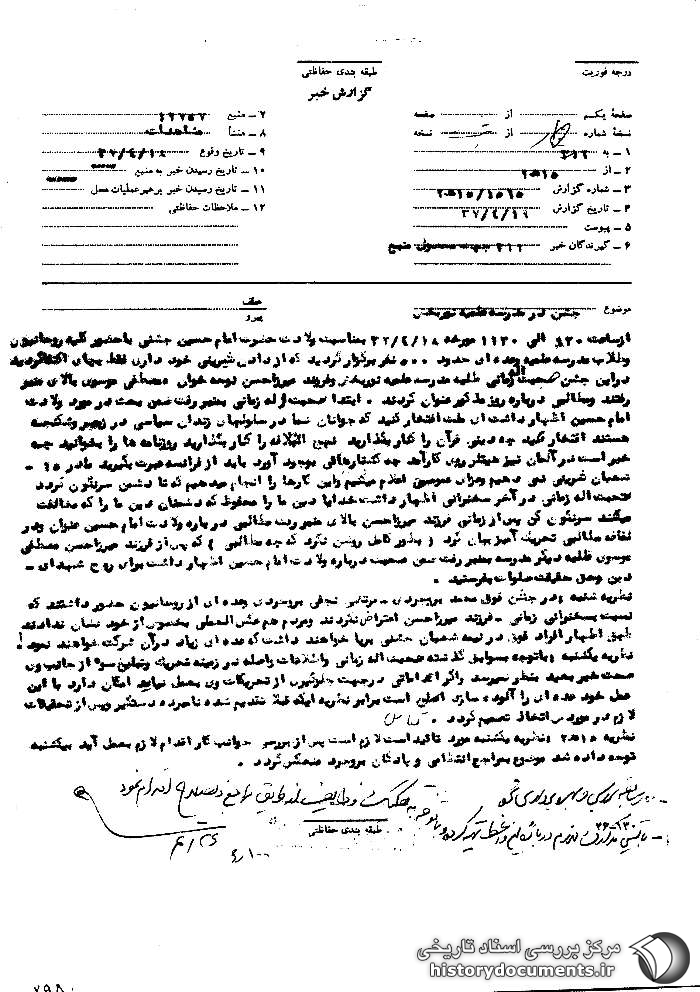 درجه فوریت
طبقه بندی حفاظتی
گزارش خبر
صفحهٔ یکم از صفحه
نسخهٔ شماره از نسخه
۱ ــ به ۳۱۲
۲ ــ از ۲۰ه۱۵
۳ ــ شماره گزارش
۴ ــ تاریخ گزارش ۳۷/۴/۱۹
۵ ــ پیوست
۶ ــ گیرندگان خبر
۷ ــ منبع
۸ ــ منشأ مشاهدات
۹ ــ تاریخ وقوع ۳۷/۴/۱۸
۱۰ ــ تاریخ رسیدن خبر به منبع
۱۱ ــ تاریخ رسیدن خبر برهبر عملیات محل
۱۲ ــ ملاحظات حفاظتی
موضوع جشن در مدرسه علمیه نوربخش
عطف
پیرو
از ساعت الی ۱۱۳۰ مورخه ۳۷/۴/۱۸ بمناسبت ولادت حضرت امام حسین جشنی با حضور کلیه روحانیون
وطلاب مدرسه علمیه وعده ای حدود ۵۰۰ نفر برگزار گردید که از دادن شیرینی خود داری فقط بچای اکتفا گردید
در این جشن صحبت اله زمانی طلبه مدرسه علمیه نوربخش وفرزند میرزاحسن نوحه خوان مصطفی موسوی بالای منبر
رفتند ومطالبی درباره روز مذکور عنوان کردند . ابتدا صحبت اله زمانی بمنبر رفت ضمن بحث در مورد ولادت
امام حسین اظهار داشت ای ملت افتخار کنید که جوانان شما در سلولهای زندان سیاسی در زجر وشکنجه
هستند افتخار کنید چه دینی قرآن را کنار بگذارید نهج البلاغه را کنار بگذارید روزنامه ها را بخوانید چه
خبر است در آلمان نیز هیتلر روی کار آمد چه کشتارهائی بوجود آورد باید از فرانسه عبرت بگیرید ما در ۱۵ ــ
شعبان شیرینی نمی دهیم وعزای عمومی اعلام میکنیم واین کارها را انجام میدهیم که تا دشمن سرنگون گردد
صحبت اله زمانی در آخر سخنرانی اظهار داشت خدایا دین ما را محفوظ که دشمنان دین ما را که مخالفت
میکنند سرنگون کن پس از زمانی فرزند میرزاحسن بالای منبر رفت مطالبی درباره ولادت امام حسین عنوان ودر
لفافه مطالبی تحریک آمیز بیان کرد ( بطور کامل روشن نکرد که چه مطالبی ) که پس از فرزند میرزاحسن مصطفی
موسوی طلبه دیگر مدرسه بمنبر رفت ضمن صحبت درباره ولادت امام حسین اظهار داشت برای روح شهدای ــ
دین وبحق حقیقت صلوات بفرستید .
نظریه شنبه : در جشن فوق محمد بروجردی ــ مرتضی نجفی بروجردی وعده ای از روحانیون حضور داشتند که
نسبت بسخنرانی زمانی ــ فرزند میرزاحسن اعتراض نکردند ومردم هم عکس العملی بخصوص از خود نشان ندادند
طبق اظهار افراد فوق در نیمه شعبان جشنی برپا خواهند داشت که عده ای زیاد در آن شرکت خواهند نمود !
نظریه یکشنبه : باتوجه بسوابق گذشته صحبت اله زمانی واطلاعات واصله در زمینه تحریک وتبلیغ سوء از جانب وی
صحت خبر بعید بنظر نمیرسد واگر اقداماتی در جهت جلوگیری از تحریکات وی بعمل نیاید امکان دارد با این
عمل خود عده ای را آلوده سازد اصلح است برابر نظریه اینکه قبلا تقدیم شده نامبرده دستگیر وپس از تحقیقات
لازم در مورد تصمیم گردد .
نظریه ۲۰ه۱۵ : نظریه یکشنبه مورد تائید است لازم است پس از بررسی جوانب کار اقدام لازم بعمل آید بیکشنبه
توجه داده شد موضوع بمراجع انتظامی و پادگان بروجرد منعکس گردد .
طبقه بندی حفاظتی
۷۹۸۰
مرکز بررسی اسناد تاریخی
historydocuments.ir